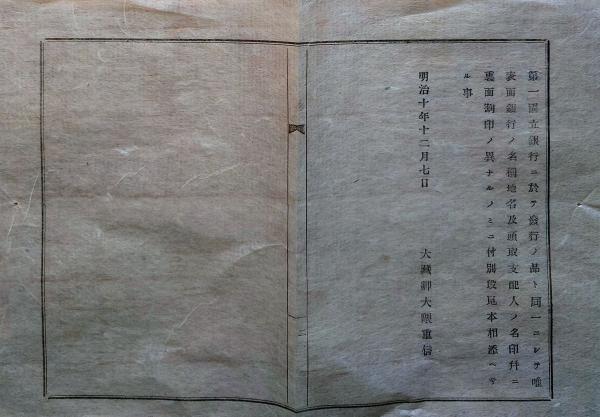 第一國立銀行ニ於テ發行ノ品ト同一ニシテ唯
表面銀行ノ名稱地名及頭取支配人ノ名印幷ニ
裏面割印ノ異ナルノミニ付別段見本相添ヘサ
ル事
明治十年十二月七日
大藏卿大隈重信
二